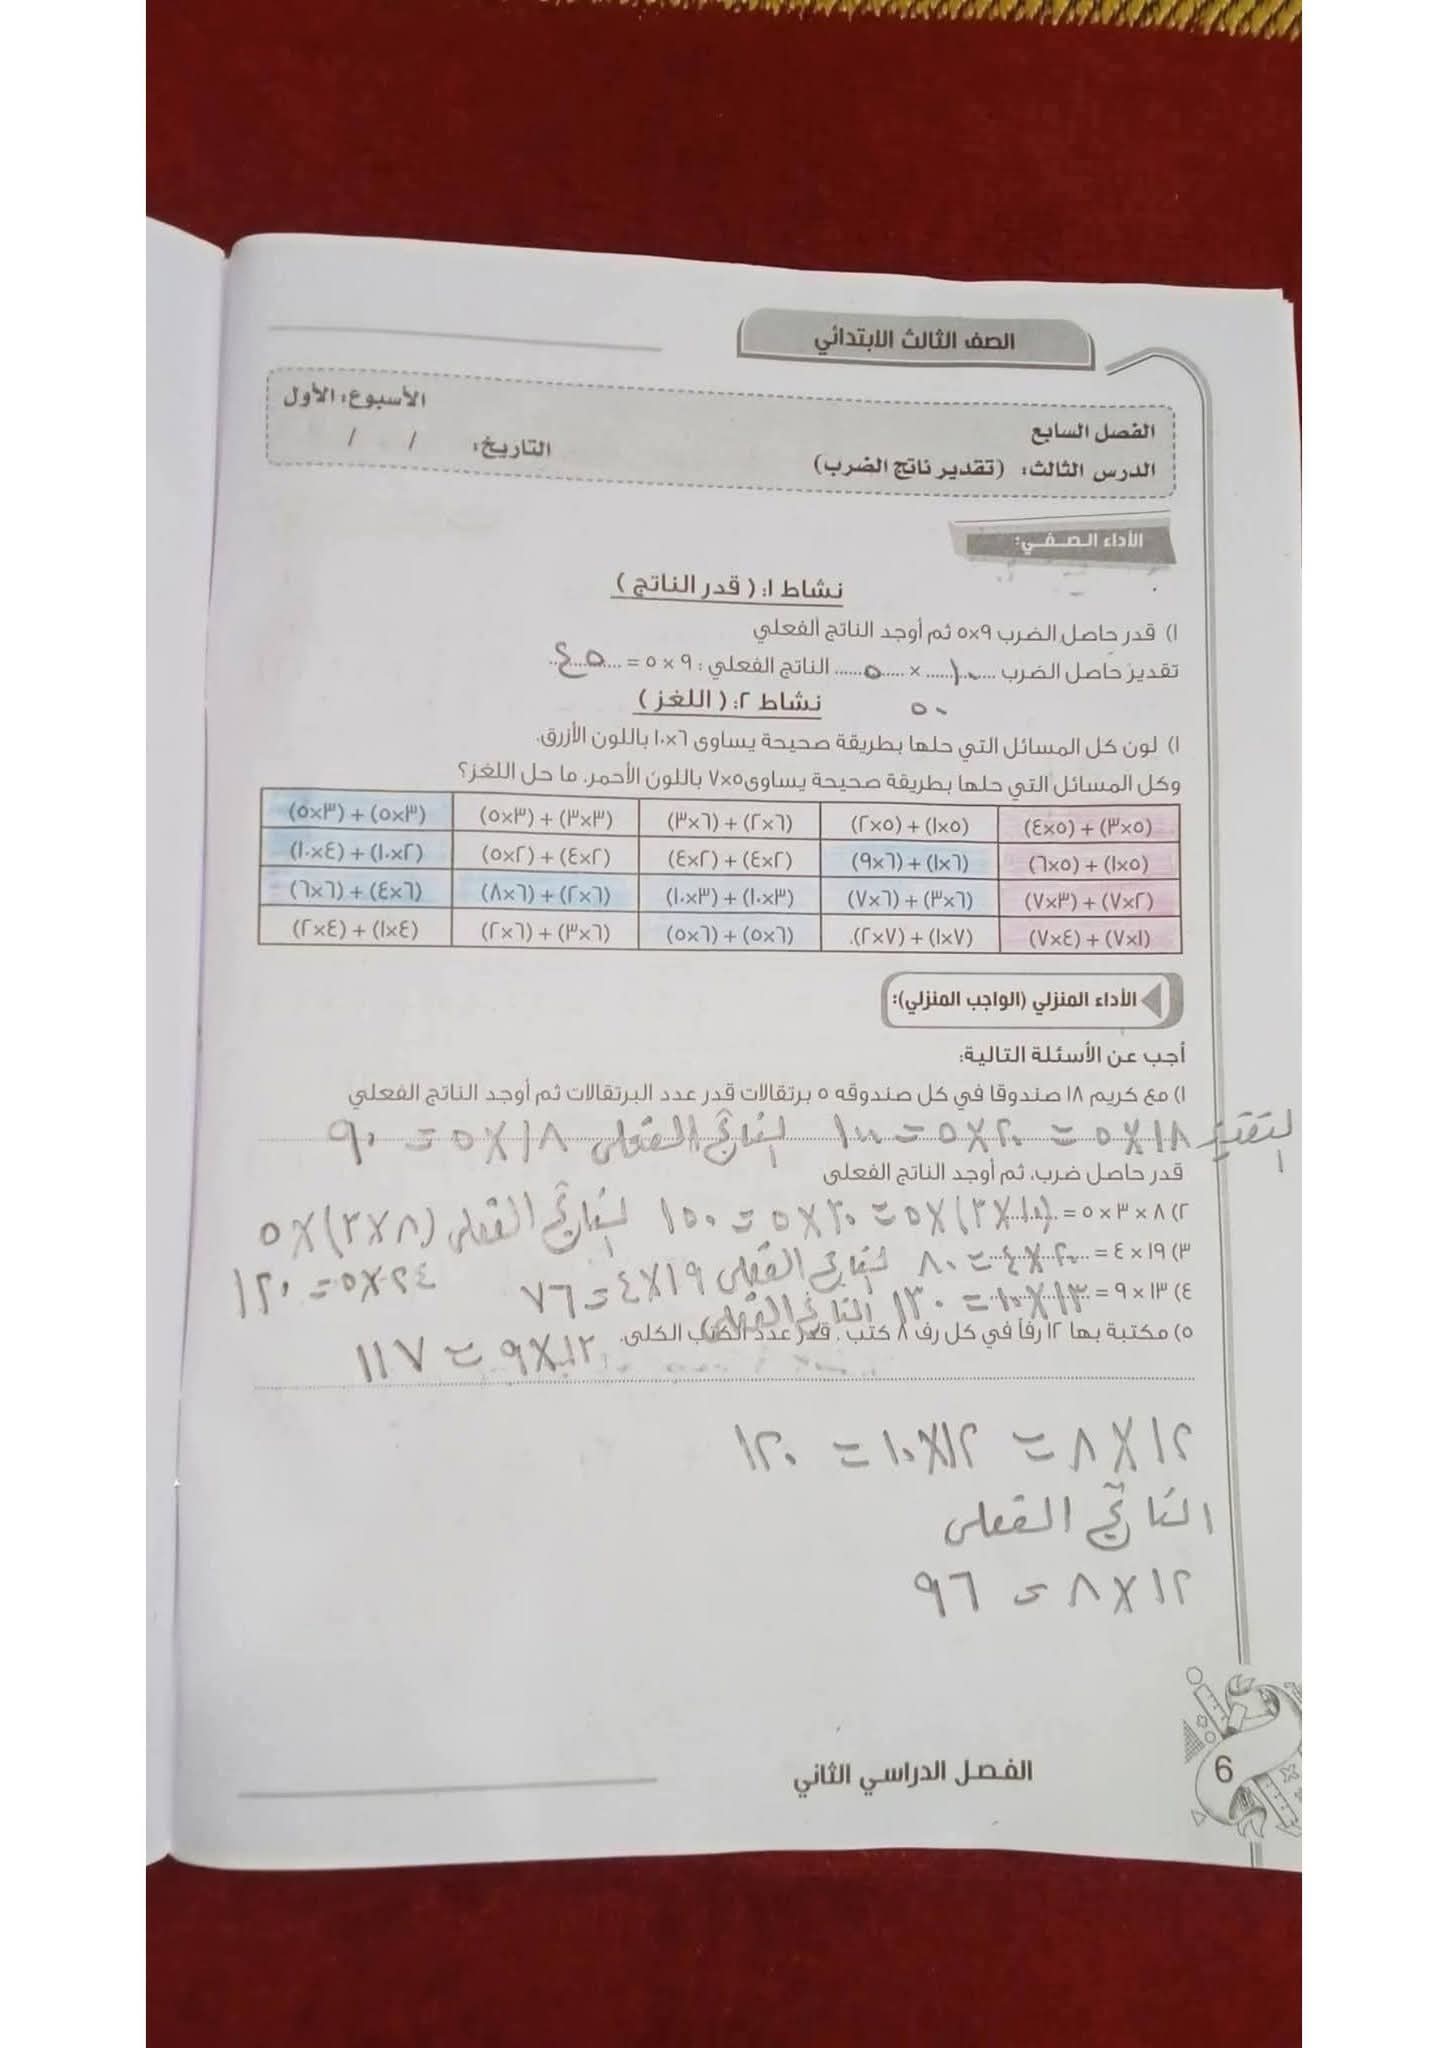 الصف الثالث الابتدائي
الفصل السابع
الأسبوع: الأول
الدرس الثالث: (تقدير ناتج الضرب)
التاريخ: / /
الأداء الصفي:
نشاط ١: ( قدر الناتج )
١) قدر حاصل الضرب ٩×٥ ثم أوجد الناتج الفعلي
تقدير حاصل الضرب ....١٠.... × ....٥.... الناتج الفعلي : ٩ × ٥ = ....٤٥....
٥٠
نشاط ٢: ( اللغز )
١) لون كل المسائل التي حلها بطريقة صحيحة يساوي ٦×١٠ باللون الأزرق.
وكل المسائل التي حلها بطريقة صحيحة يساوي ٥×٧ باللون الأحمر. ما حل اللغز؟
(٣×٥) + (٤×٥) (١×٥) + (٢×٥) (٢×٦) + (٣×٦) (٣×٣) + (٥×٣) (٥×٣) + (٥×٣)
(١×٥) + (٦×٥) (١×٦) + (٩×٦) (٤×٢) + (٤×٢) (٤×٢) + (٥×٢) (١٠×٢) + (١٠×٤)
(٧×٢) + (٧×٣) (٣×٦) + (٧×٦) (١٠×٣) + (١٠×٣) (٢×٦) + (٨×٦) (٤×٦) + (٦×٦)
(٧×١) + (٧×٤) (١×٧) + (٢×٧). (٥×٦) + (٥×٦) (٣×٦) + (٢×٦) (١×٤) + (٢×٤)
الأداء المنزلي (الواجب المنزلي):
أجب عن الأسئلة التالية:
١) مع كريم ١٨ صندوقا في كل صندوقه ٥ برتقالات قدر عدد البرتقالات ثم أوجد الناتج الفعلي
التقدير ١٨ × ٥ = ٢٠ × ٥ = ١٠٠ الناتج الفعلى ١٨ × ٥ = ٩٠
قدر حاصل ضرب، ثم أوجد الناتج الفعلى
٢) ٨ × ٣ × ٥ = (١٠ × ٣) × ٥ = ٣٠ × ٥ = ١٥٠ الناتج الفعلى (٨ × ٣) × ٥
٢٤ × ٥ = ١٢٠
٣) ١٩ × ٤ = ٢٠ × ٤ = ٨٠ الناتج الفعلى ١٩ × ٤ = ٧٦
٤) ١٣ × ٩ = ١٣ × ١٠ = ١٣٠ الناتج الفعلى
١٣ × ٩ = ١١٧
٥) مكتبة بها ١٢ رفاً في كل رف ٨ كتب . قدر عدد الكتب الكلى.
١٢ × ٨ = ١٢ × ١٠ = ١٢٠
الناتج الفعلى
١٢ × ٨ = ٩٦
الفصل الدراسي الثاني
6